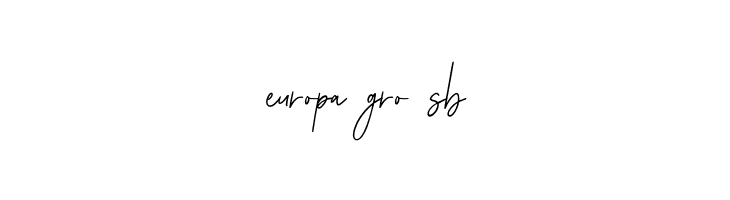 europa gro sb